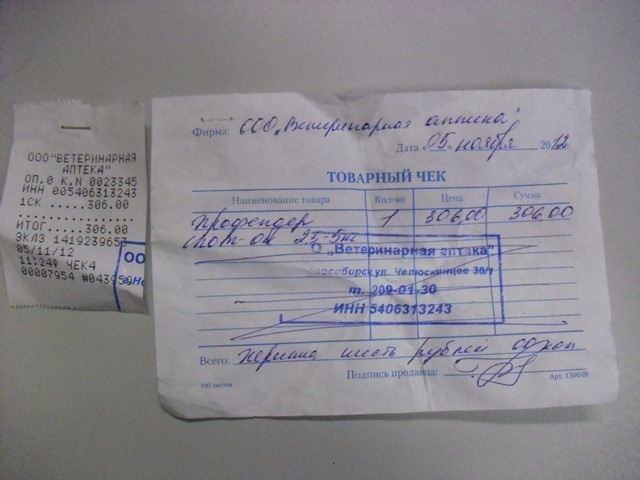 ООО"ВЕТЕРИНАРНАЯ
АПТЕКА"
ОП.0 К.N 0023345
ИНН 005406313243
1СК .....306.00
ИТОГ.....306.00
ЭКЛЗ 1419239653
05/11/12
11:24 ЧЕК4
00007954 #043959
ОО
Фирма: ООО „Ветеринарная аптека"
Дата «05» ноября 2012
ТОВАРНЫЙ ЧЕК
Наименование товара Кол-во Цена Сумма
Профендер 1 306,00 306.00
спот-он 2,5-5кг
О „Ветеринарная аптека"
восибирск ул. Челюскинцев 30/1
т. 209-01-30
ИНН 5406313243
Всего: шесть рублей 00 коп
Подпись продавца:
100 листов Арт. 130049